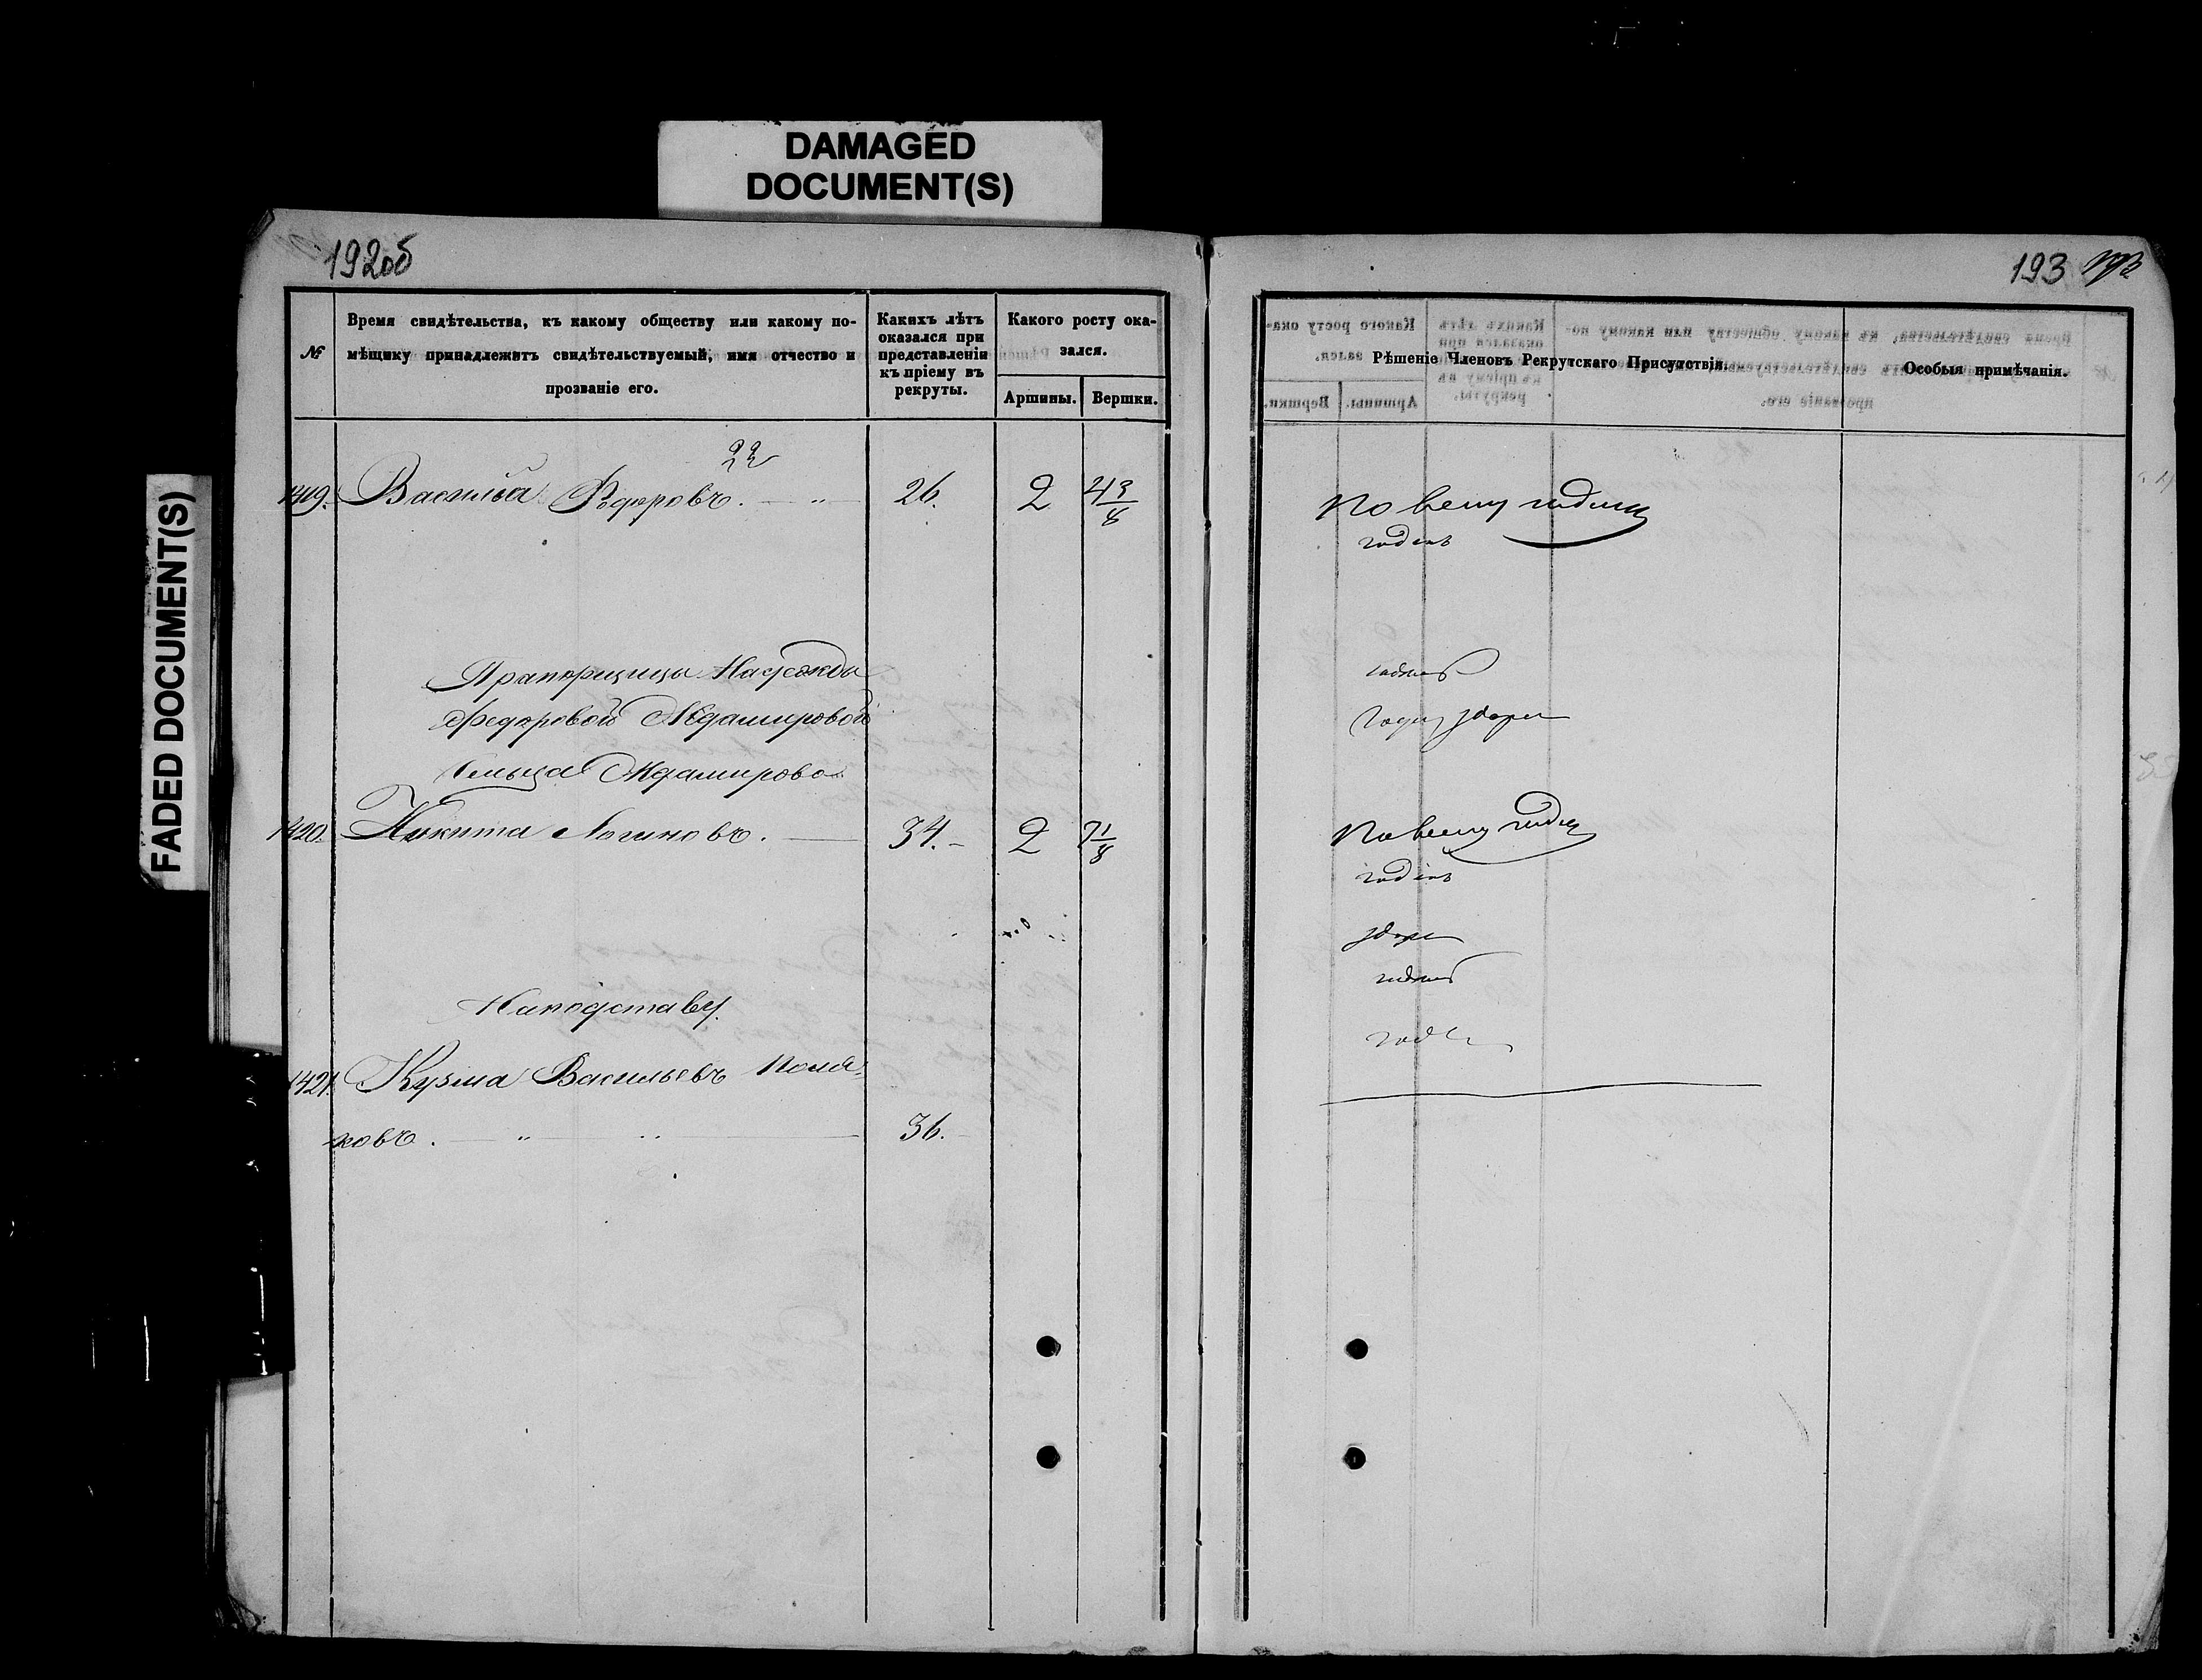 DAMAGED
DOCUMENT(S)
FADED DOCUMENT(S)
192об
193
№
Время свидѣтельства, къ какому обществу или какому по-
мѣщику принадлежитъ свидѣтельствуемый, имя отчество и
прозваніе его.
Какихъ лѣтъ
оказался при
представленіи
къ пріему въ
рекруты.
Какого росту ока-
зался.
Аршины.
Вершки.
Рѣшеніе Членовъ Рекрутскаго Присутствія.
Особыя примѣчанія.
22
1419. Василій Федоровъ. 26. 2 4 3/8
По всему годенъ
годенъ
Прапорщицы Надежды
Федоровой
сельца
годенъ
1420. Никита Логиновъ. 34. 2 7 1/8
По всему годенъ
годенъ
годенъ
Наподставу.
1421. Кузма Васильевъ Поля-
ковъ. 36.